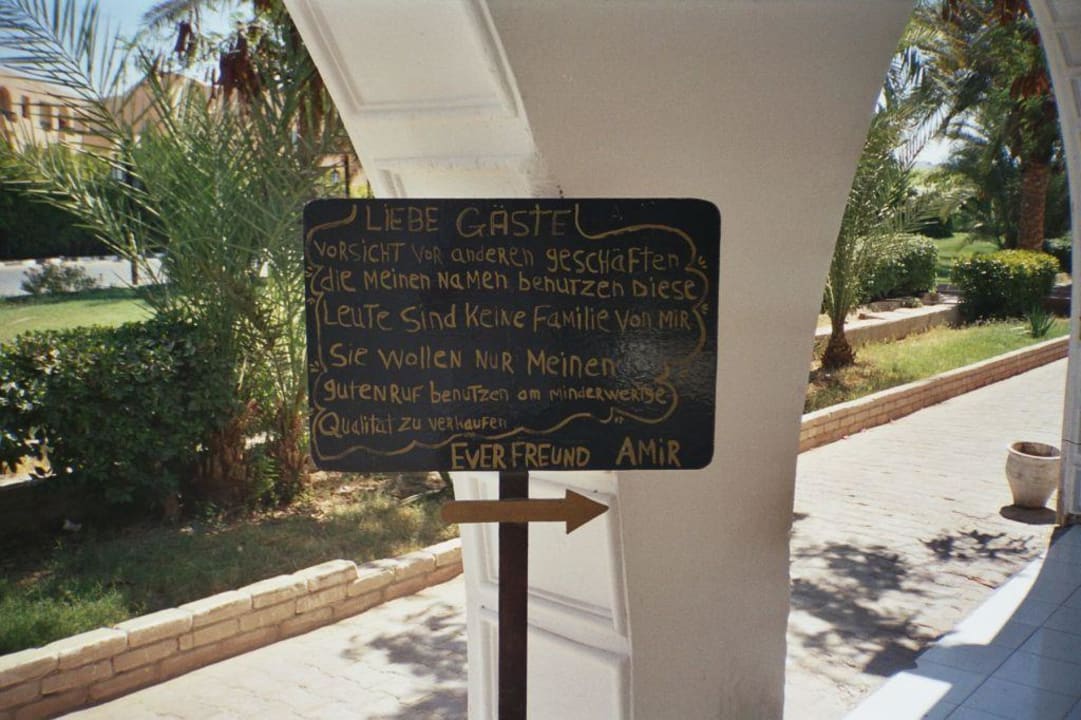 LiEBE GÄSTE
VORSICHT VOR anderen geschäften
die Meinen NaMEN benutzen Diese
Leute Sind Keine Familie Von MiR
Sie Wollen NUR Meinen
guten Ruf benutzen am minderwertige
Qualität zu verkaufen
EVER FREUND AMiR